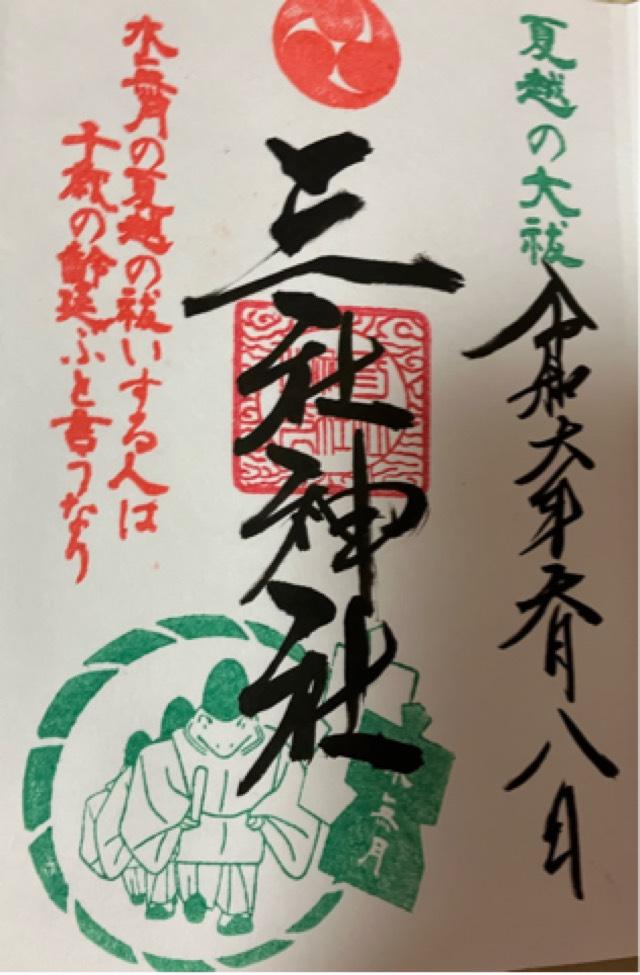 夏越の大祓
令和六年六月八日
三社神社
水無月の夏越の祓いする人は
千歳の齢延ぶと言うなり
水無月